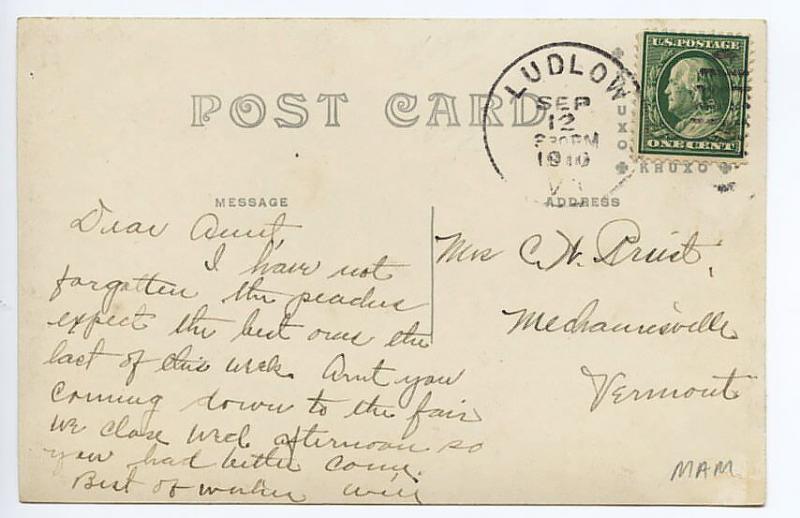 POST CARD
LUDLOW
SEP
12
330PM
1910
VT
U.S. POSTAGE
ONE CENT
KRUXO
MESSAGE
ADDRESS
Dear Aunt,
I have not
forgotten the peaches
expect the best ones the
last of this week. Arnt you
coming down to the fair
we close Wed. afternoon so
you had better come.
Best of wishes Will
Mrs C. W. Priest,
Mechanicsville
Vermont
MAM